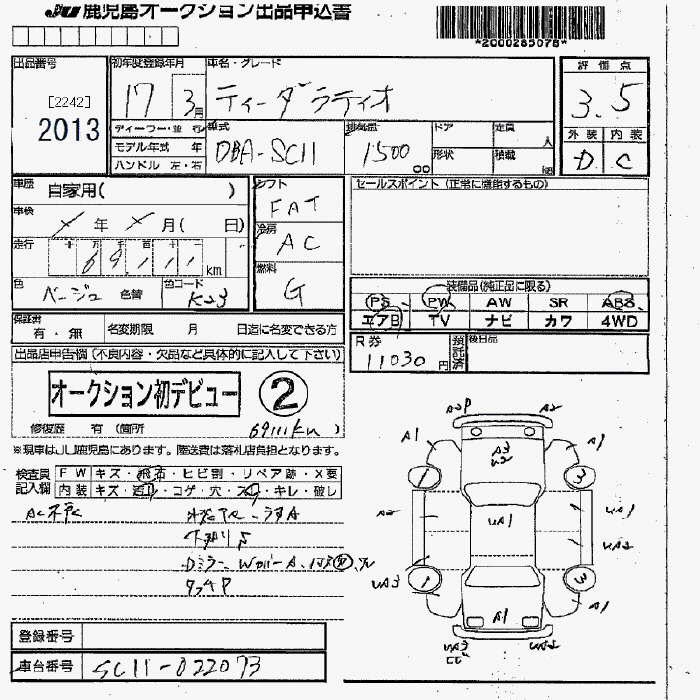 JU 鹿児島オークション出品申込書
*2000285078*
出品番号
[2242]
2013
初年度登録年月
17 3月
車名・グレード
ティーダラティオ
評価点
3.5
外装 内装
D C
ディーラー・並 行
モデル年式 年
ハンドル 左・右
型式
DBA-SC11
排気量
1500 cc
ドア
形状
定員 人
積載 kg
車歴 自家用( )
車検
メ 年 メ 月( 日)
走行 十 万 千 百 十 一
69,111 km
色
ベージュ 色替
色コード
K23
シフト
FAT
冷房
AC
燃料
G
セールスポイント (正常に機能するもの)
装備品(純正品に限る)
PS PW AW SR ABS
エアB TV ナビ カワ 4WD
保証書
有・無
名変期限 月 日迄に名変できる方
R券
11030円
預託済
後日品
出品店申告欄(不良内容・欠品など具体的に記入して下さい)
オークション初デビュー ②
修復歴 有(箇所 69111km )
※現車はJU鹿児島にあります。陸送費は落札店負担となります。
検査員記入欄
FW キズ・飛石・ヒビ割・リペア跡・X要
内装 キズ・汚れ・コゲ・穴・スレ・キレ・破レ
AC不良
下廻りS
A2P A2
A1 A3 U2 A1
1 3
A2 UA1 UA1
UA2
UA3 1 3
A1 A1
UA3 UA2
登録番号
車台番号 SC11-022073